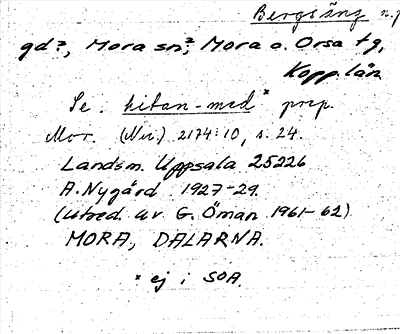 Bergsäng n.
gd?, Mora sn?, Mora o. Orsa tg,
Kopp. län
Se. hitan-med* prep.
Mor. (Nu.) 2174:10, s. 24.
Landsm. Uppsala 25226
A. Nygård 1927-29.
(Utred. av G. Öman 1961-62)
MORA, DALARNA.
* ej i SOA.